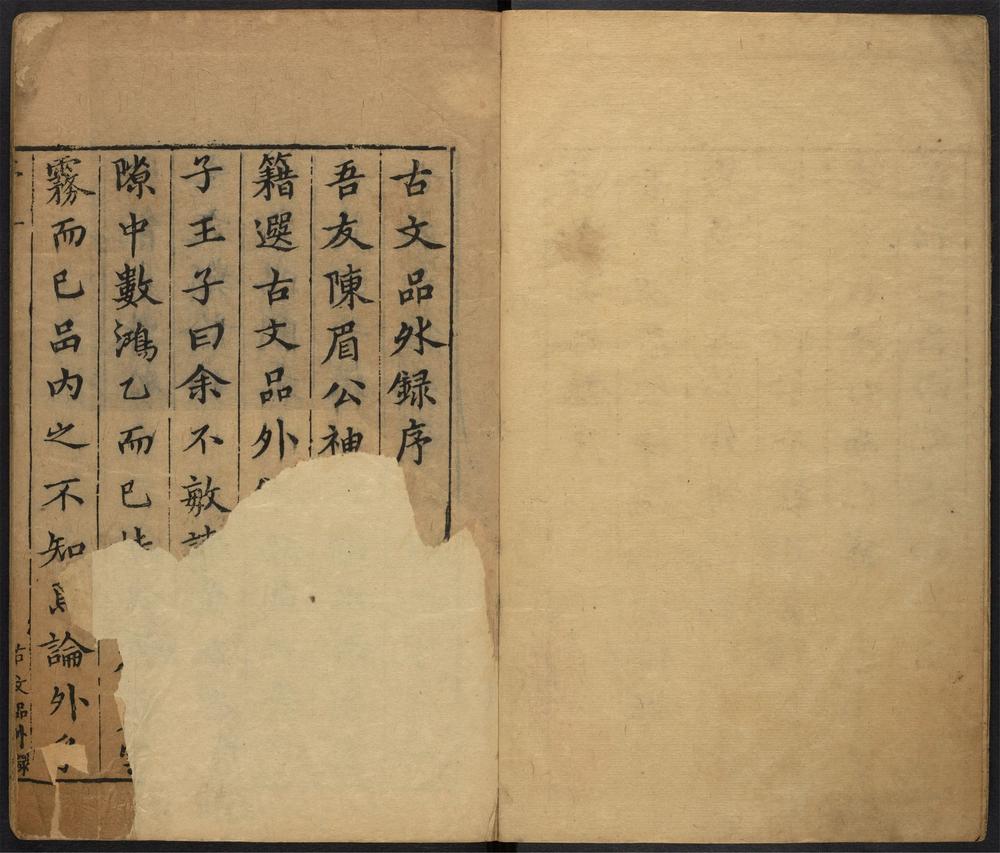 古文品外錄序
吾友陳眉公神
籍選古文品外
子王子曰余不敏
隙中數鴻乙而已
霧而已品内之不知 論外
古文品外錄